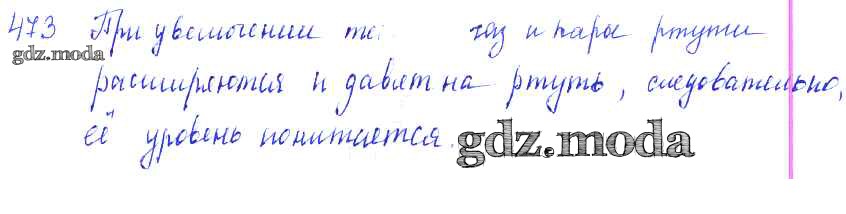 473 При увеличении те газ и пары ртути
gdz.moda
расширяются и давят на ртуть, следовательно,
её уровень понижается.
gdz.moda